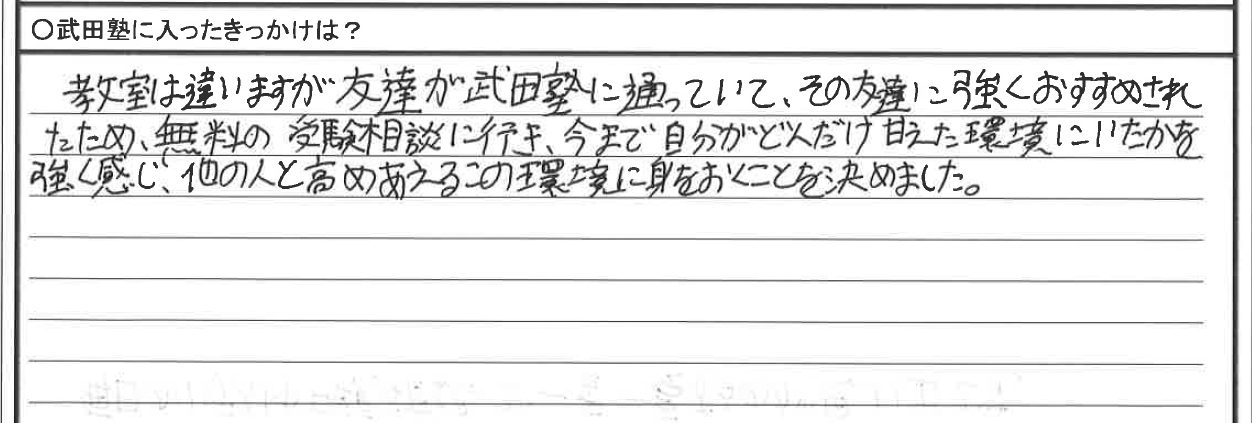 ○武田塾に入ったきっかけは？
教室は違いますが友達が武田塾に通っていて、その友達に強くおすすめされ
たため、無料の受験相談に行き、今まで自分がどんだけ甘えた環境にいたかを
強く感じ、他の人と高めあえるこの環境に身をおくことを決めました。